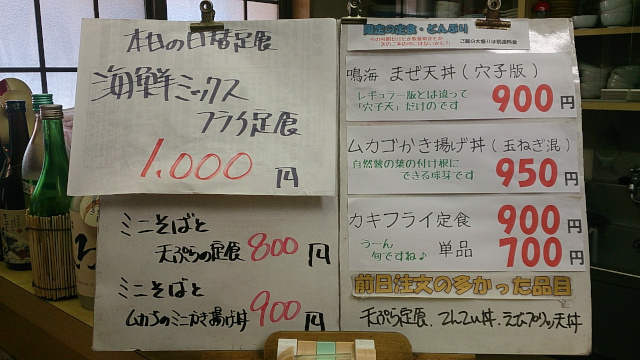 本日の日替定食
海鮮ミックス
フライ定食
1,000円
ミニそばと
天ぷらの定食 800円
ミニそばと
ムカゴのミニかき揚げ丼 900円
限定の定食・どんぶり
ご飯の大盛りは別途料金
鳴海 まぜ天丼(穴子版)
レギュラー版とは違って
「穴子天」だけのです
900円
ムカゴかき揚げ丼(玉ねぎ混)
自然薯の葉の付け根に
できる球芽です
950円
カキフライ定食 900円
うーん
旬ですね♪
単品 700円
前日注文の多かった品目
天ぷら定食、てんてい丼、えびアリッ天丼